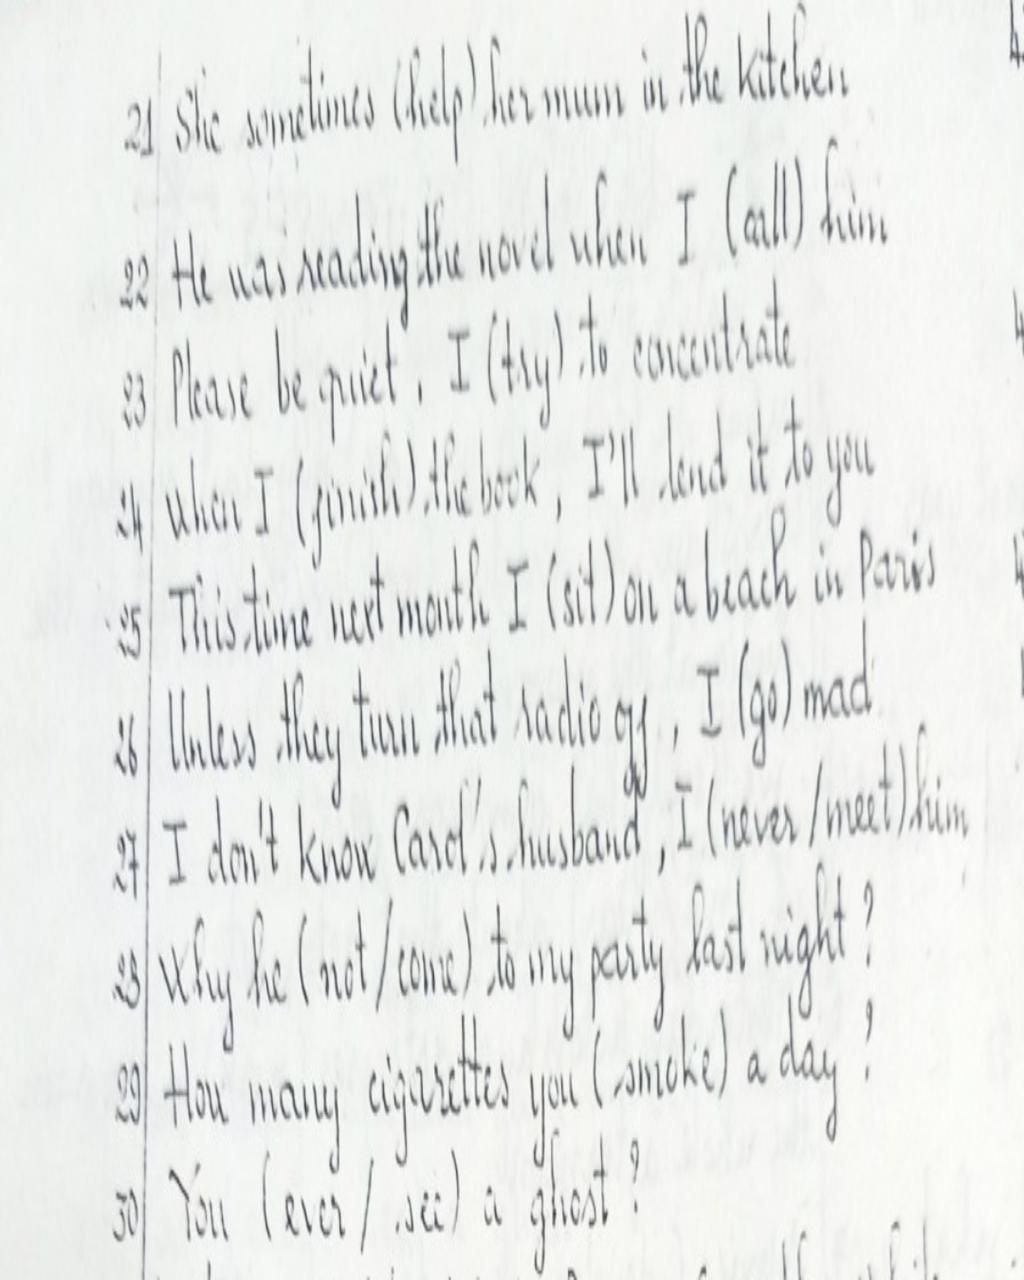 21 She sometimes (help) her mum in the kitchen
22 He was reading the novel when I (call) him
23 Please be quiet, I (try) to concentrate
24 When I (finish) the book, I'll lend it to you
25 This time next month I (sit) on a beach in Paris
26 Unless they turn that radio off, I (go) mad
27 I don't know Carol's husband, I (never/meet) him
28 Why he (not/come) to my party last night?
29 How many cigarettes you (smoke) a day?
30 You (ever/see) a ghost?